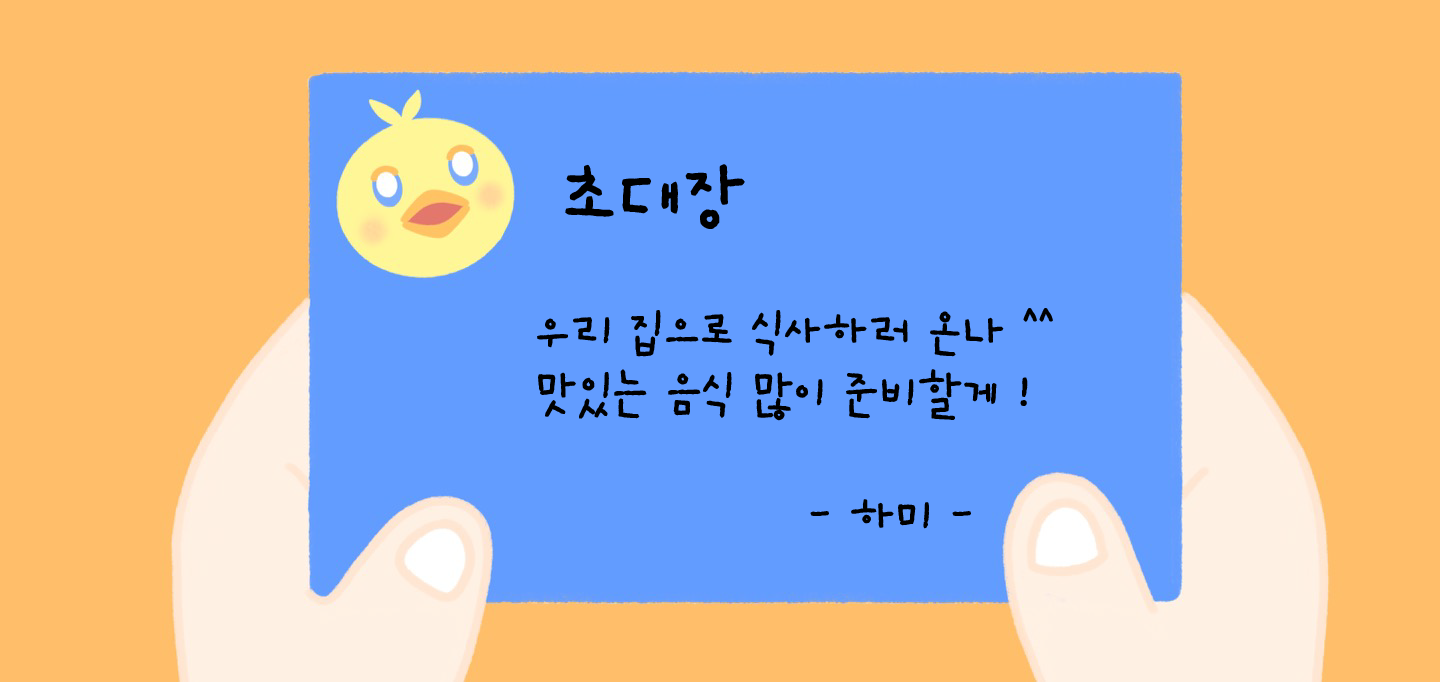 초대장
우리 집으로 식사하러 온나 ^^
맛있는 음식 많이 준비할게 !
- 하미 -